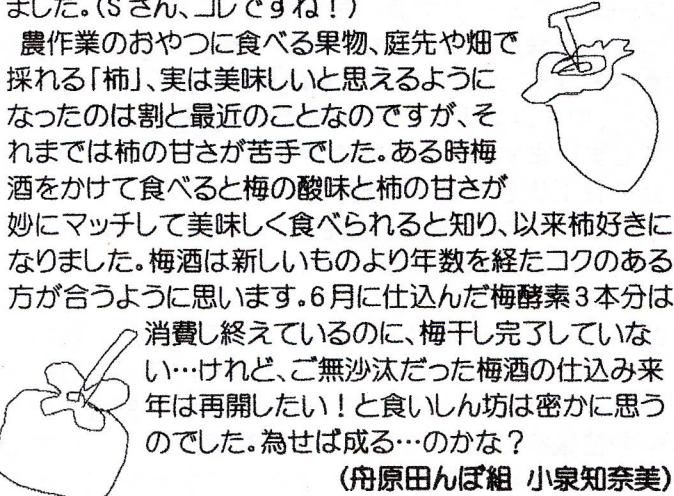 ました。(Sさん、コレですね！)
農作業のおやつに食べる果物、庭先や畑で
採れる「柿」、実は美味しいと思えるように
なったのは割と最近のことなのですが、そ
れまでは柿の甘さが苦手でした。ある時梅
酒をかけて食べると梅の酸味と柿の甘さが
妙にマッチして美味しく食べられると知り、以来柿好きに
なりました。梅酒は新しいものより年数を経たコクのある
方が合うように思います。6月に仕込んだ梅酵素3本分は
消費し終えているのに、梅干し完了していな
い…けれど、ご無沙汰だった梅酒の仕込み来
年は再開したい！と食いしん坊は密かに思う
のでした。為せば成る…のかな？
(舟原田んぼ組 小泉知奈美)